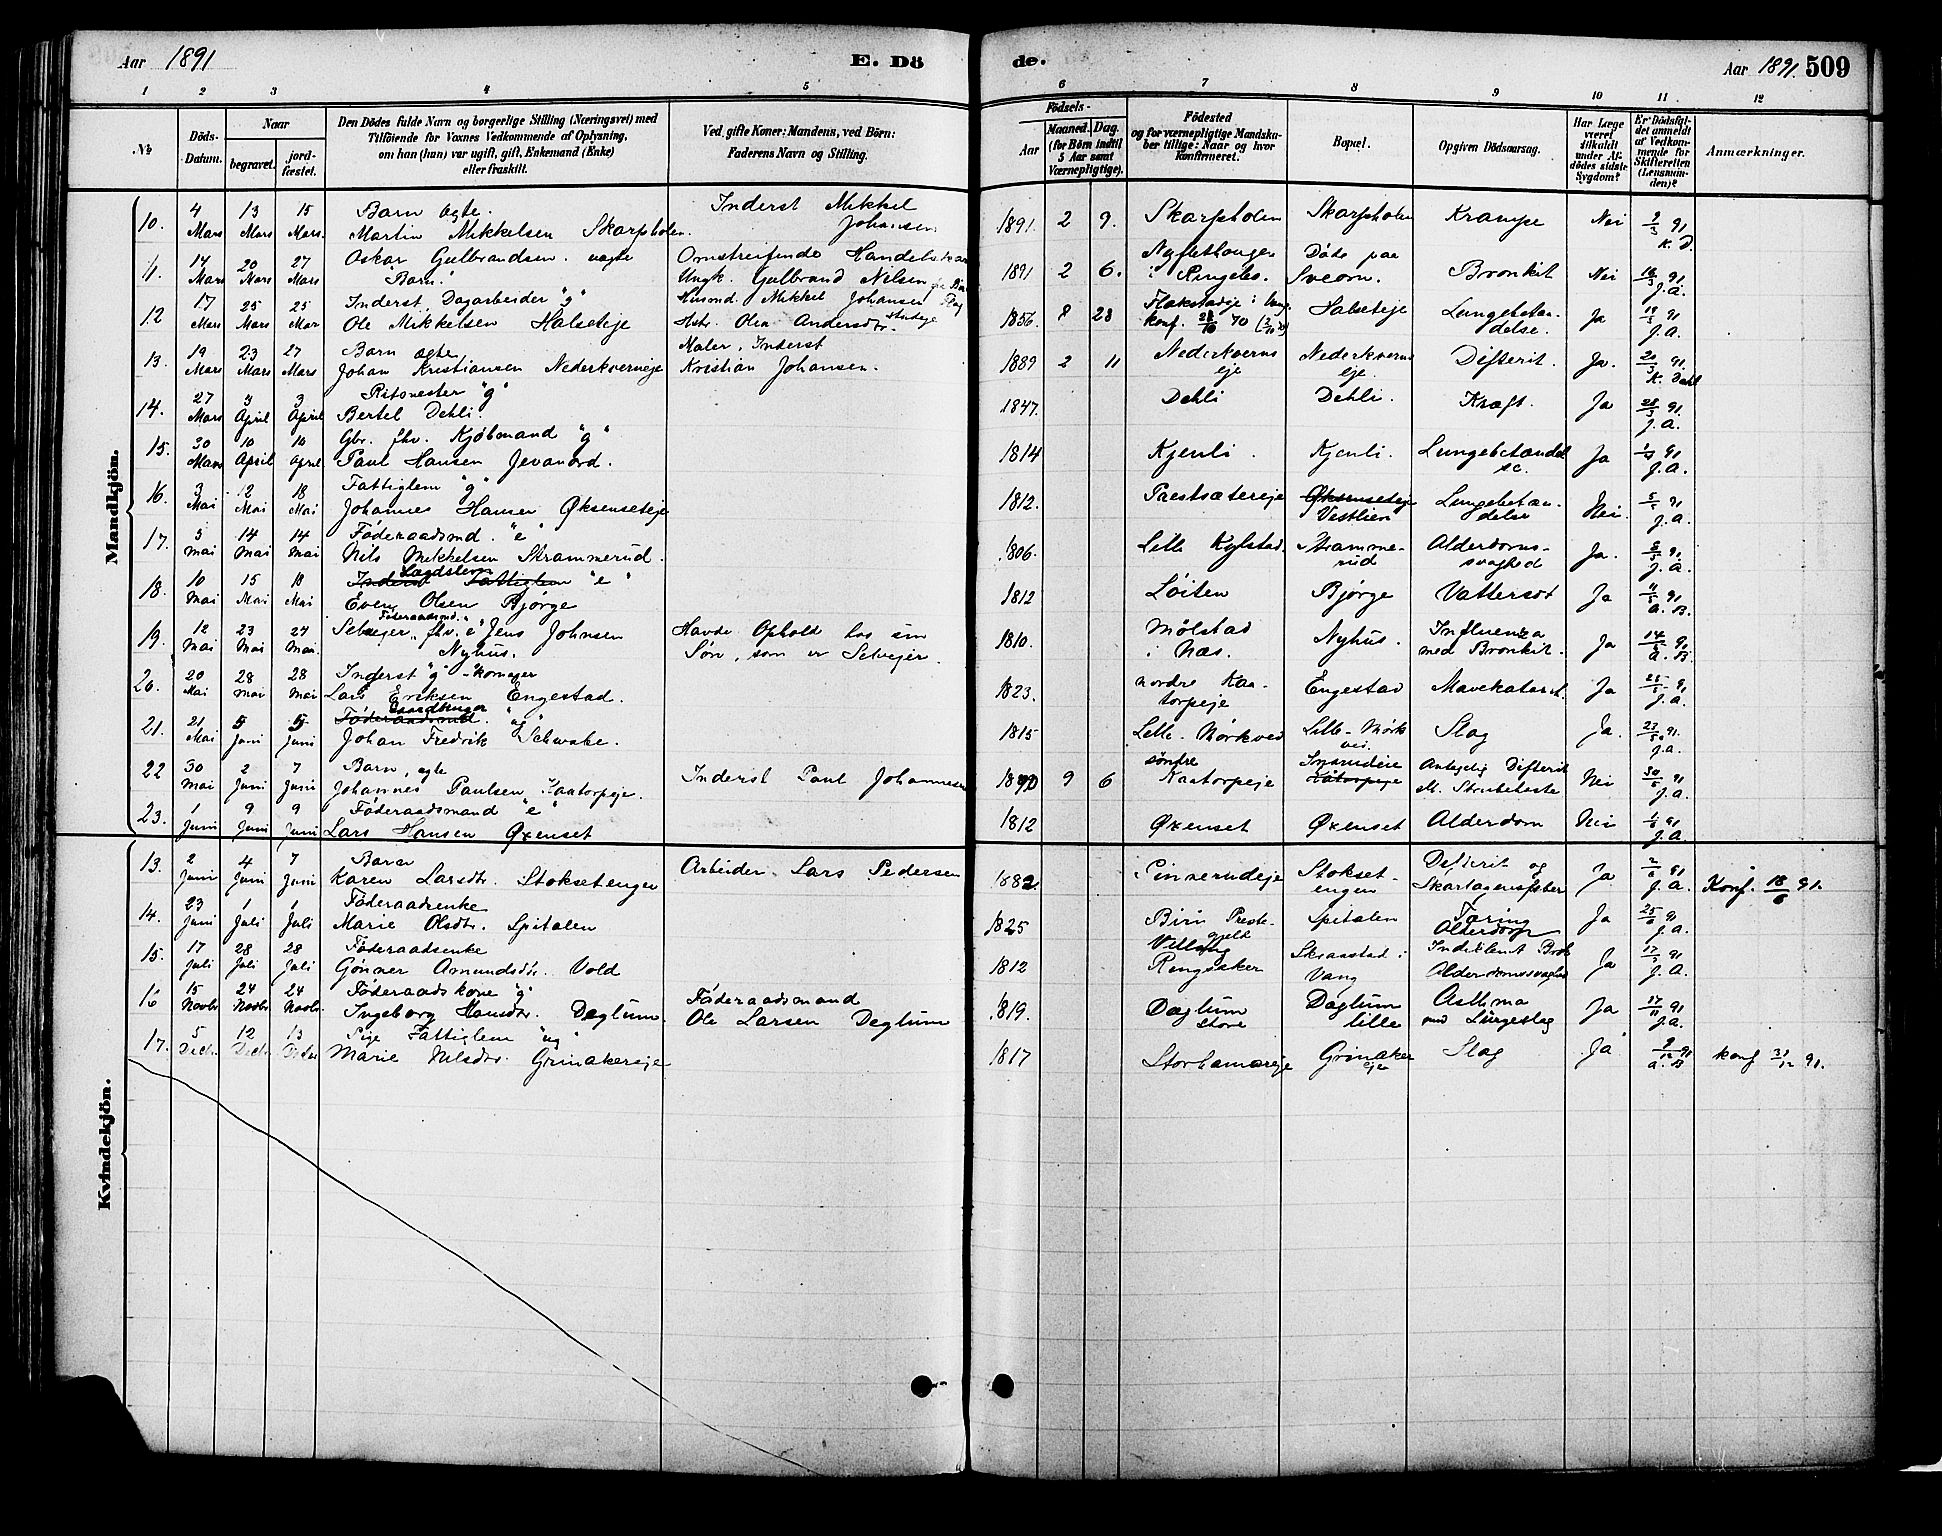 Aar 1891 E. Dö
de. Aar 1891. 509
1 2 3 4 5 6 7 8 9 10 11 12
№
Döds-Datum.
Naar
begravet. jordfæstet.
Den Dödes fulde Navn og borgerlige Stilling (Næringsvei) med
Tilföiende for Voxnes Vedkommende af Oplysning,
om han (hun) var ugift, gift, Enkemand (Enke)
eller fraskilt.
Ved gifte Koner: Mandens, ved Börn:
Faderens Navn og Stilling.
Födsels-
Aar Maaned. Dag.
(for Börn indtil
5 Aar samt
Værnepligtige).
Födested
og for værnepligtige Mandskaber tillige: Naar og hvor konfirmeret.
Bopæl.
Opgiven Dödsaarsag.
Har Læge været tilkaldt under Afdödes sidste Sygdom?
Er Dödsfaldet anmeldt af Vedkommende for Skifteretten (Lensmanden)?
Anmærkninger.
Mandkjön.
10. 4 Mars 13 Mars 15 Mars. Barn ægte. Martin Mikkelsen Skarpholen. Inderst Mikkel Johansen 1891. 2 9. Skarpholen Skarpholen Krampe Nei 9/3 91 K. D.
11. 14 Mars 20 Mars 27 Mars Oskar Gulbrandsen. uægte "Barn". Omstreifende Ungk. Gulbrand Nilsen 1891 2 6. i Ringebo. Døde paa Sveen. Bronkit Nei 91. J. A.
12 17 Mars 25 Mars 25 Mar Inderst, Dagarbeider "g" Ole Mikkelsen Halseteje Husmd. Mikkel Johansen Hstr. Olea Andersdtr. 1856. 8 28 konf. 70 Halseteje Lungebetændelse. Ja 19/3 91 J. A.
13. 19 Mars 23 Mars 27 Mars Barn ægte Johan Kristiansen Nederkverneje Maler, Inderst Kristian Johansen. 1889 2 11 Nederkverns eje Nederkverns eje. Difterit. Ja. 20/3 91. K. Dahl
14. 27 Mars 3 April 3 April "g" Bertel Dehli. 1847. Dehli Dehli. Kræft. Ja 28/3 91. J. A.
15. 30 Mars 10 April 10 April Gbr. fhv. Kjøbmand "g" Paul Hansen Jevanord. 1814 Kjenli. Kjenli. Lungebetændelse. Ja 91 J. A.
16. 3 Mai 12 Mai 18 Mai Fattiglem "g" Johannes Hansen Øksenseteje 1812. Paestsætereje Øksenseteje Vestlien Lungebetændelse Nei. 5/5 91. J. A.
17. 5 Mai 14 Mai 14 Mai Føderaadsmd. "e" Nils Mikkelsen Strammerud. 1806. Lille Kylstad Strammerud Alderdomssvaghed Ja. 91. J. A.
18. 10 Mai 15 Mai 18 Mai Inderst Fattiglem Lægdslem "e" Even Olsen Bjørge 1812 Løiten Bjørge Vattersot Ja 91 A. B.
19. 12 Mai 23 Mai 24 Mai. Selveger, fhv. Føderaadsmd. "e" Jens Johnsen Nyhus. Havde Ophold hos sin Søn, som er Selvejer. 1810. Mølstad i Næs. Nyhus. Influenza med Bronkit. Ja 14/5 91 A. B.
20. 20 Mai 28 Mai 28 Mai Inderst "g" Lars Eriksen Engestad. 1823. nordre Kaatorpeje Engestad Mavekatarrh. Ja 91 J. A.
21. 21 Mai 5 Juni 5 Juni Føderaadsmd. Gaardbruger "ug" Johan Fredrik Schwabe. 1815 Lille-Mørkved Lille-Mørkved. Slag Ja. 23/5 91. J. A.
22 30 Mai 2 Juni 7 Juni Barn, ægte Johannes Paulsen Kaatorpeje. Inderst Paul Johannesen 1890 9 6 søndre Kaatorpeje Kaatorpeje Antagelig Difterit Nei 30/5 91 J. A.
23. 1 Juni 9 Juni 9 Juni Føderaadsmand "e" Lars Hansen Øxenset 1812 Øxenset Øxenset Alderdom Nei 91 J. A.
Kvindekjön.
13. 2 Juni 4 Juni 7 Juni Barn Karen Larsdtr. Stoksetengen Arbeider Lars Pedersen 1882 Finnerudeje Stoksetengen Difterit og Skarlagensfeber Ja 91 J. A. Konf. 18/6 91.
14. 23 Juni 1 Juli 1 Juli Føderaadsenke Marie Olsdtr. Spitalen 1825 Biri Prestegjeld Spitalen Tæring Alderdom Ja 25/6 91 J. A.
15. 17 Juli 28 Juli 28 Juli Føderaadsenke Gønner Amundsdtr. Vold 1812 Ringsaker Skraastad i Vang Indeklemt Brok Alderdomssvaghed Ja 91 J. A.
16 15 Novbr. 24 Novbr. 24 Novbr. Føderaadskone "g" Ingeborg Hansdtr. Deglum Føderaadsmand Ole Larsen Deglum 1819. Deglum store Deglum lille Asthma med Lungeslag Ja 17/11 91 J. A.
17. 5 Decbr 12 Decbr 13 Decbr Pige Fattiglem "ug" Marie Nilsdtr. Grimakereje 1817 Storhamareje Grimaker eje Slag Ja 9/12 91 A. B konf 31/12 91.